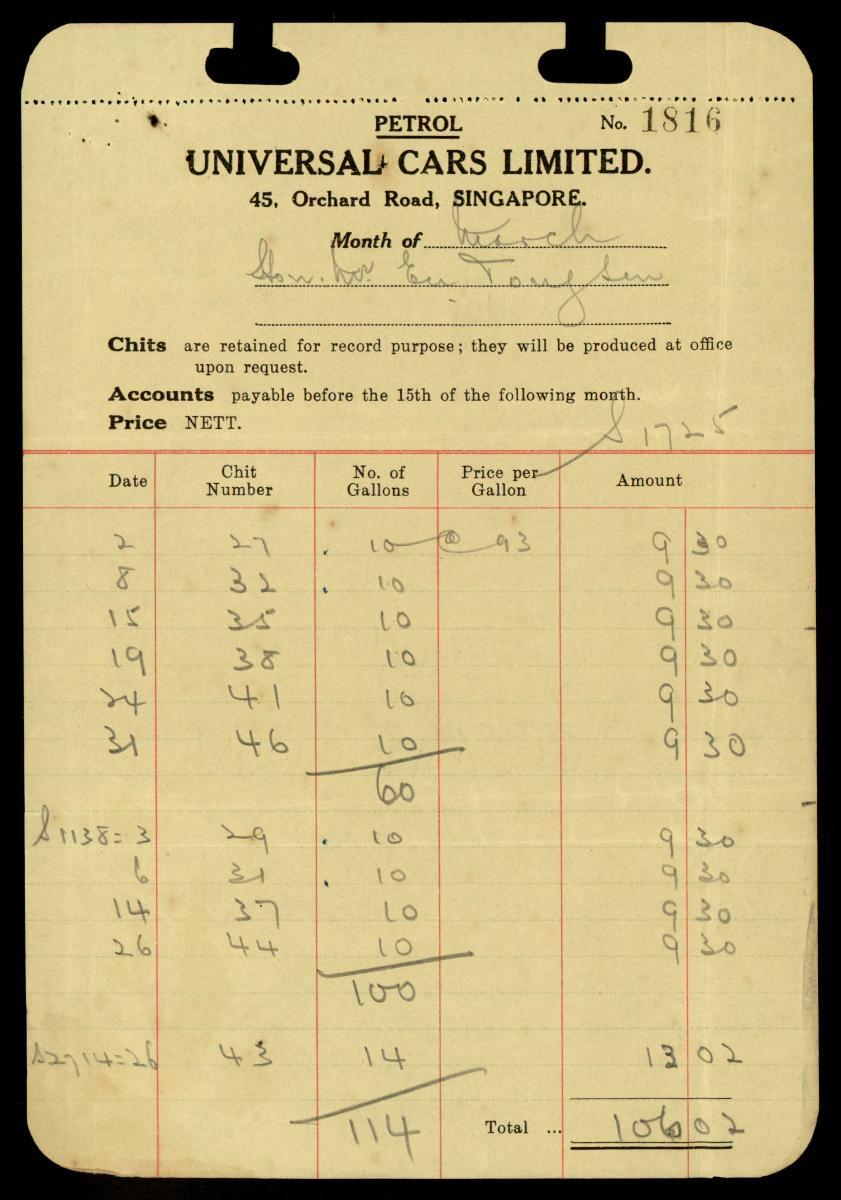 PETROL No. 1816
UNIVERSAL CARS LIMITED.
45, Orchard Road, SINGAPORE.
Month of March
Hon. Mr. Eu Tong Sen
Chits are retained for record purpose; they will be produced at office
upon request.
Accounts payable before the 15th of the following month.
Price NETT.
S 1725
Date Chit Number No. of Gallons Price per Gallon Amount
2 27 10 @ 93 9 30
8 32 10 9 30
15 35 10 9 30
19 38 10 9 30
24 41 10 9 30
31 46 10 9 30
60
S1138= 3 29 10 9 30
6 31 10 9 30
14 37 10 9 30
26 44 10 9 30
100
S2714=26 43 14 13 02
114 Total ... 106 02